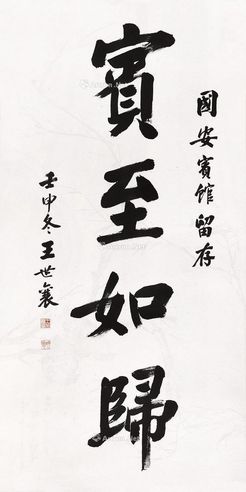 國安賓館留存
賓至如歸
壬申冬王世襄